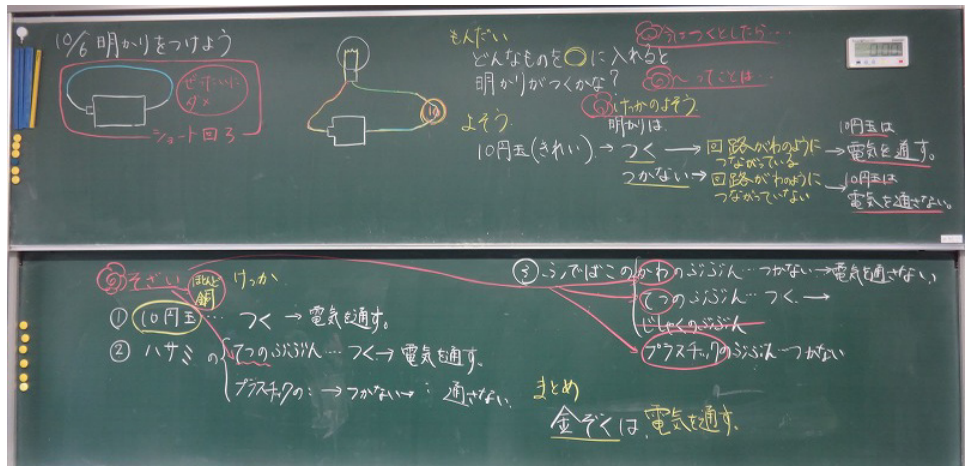 10/6 明かりをつけよう
ぜったいに
ダメ
ショート回ろ
10
もんだい
どんなものを○に入れると
明かりがつくかな?
今はつくとしたら…
〜ってことは…
けっかのよそう
よそう
明かりは
10円玉(きれい)→つく→回路がわのように
つながっている
→10円玉は
電気を通す。
つかない→回路がわのように
つながっていない
→10円玉は
電気を通さない。
そざい
ほとんど
銅
けっか
① 10円玉… つく→電気を通す。
② ハサミの てつのぶぶん…つく→電気を通す。
プラスチックの:→つかない→: 通さない。
③ ふでばこのかわのぶぶん…つかない→電気を通さない,
てつのぶぶん…つく→
じしゃくのぶぶん
プラスチックのぶぶん…つかない
まとめ
金ぞくは、電気を通す。